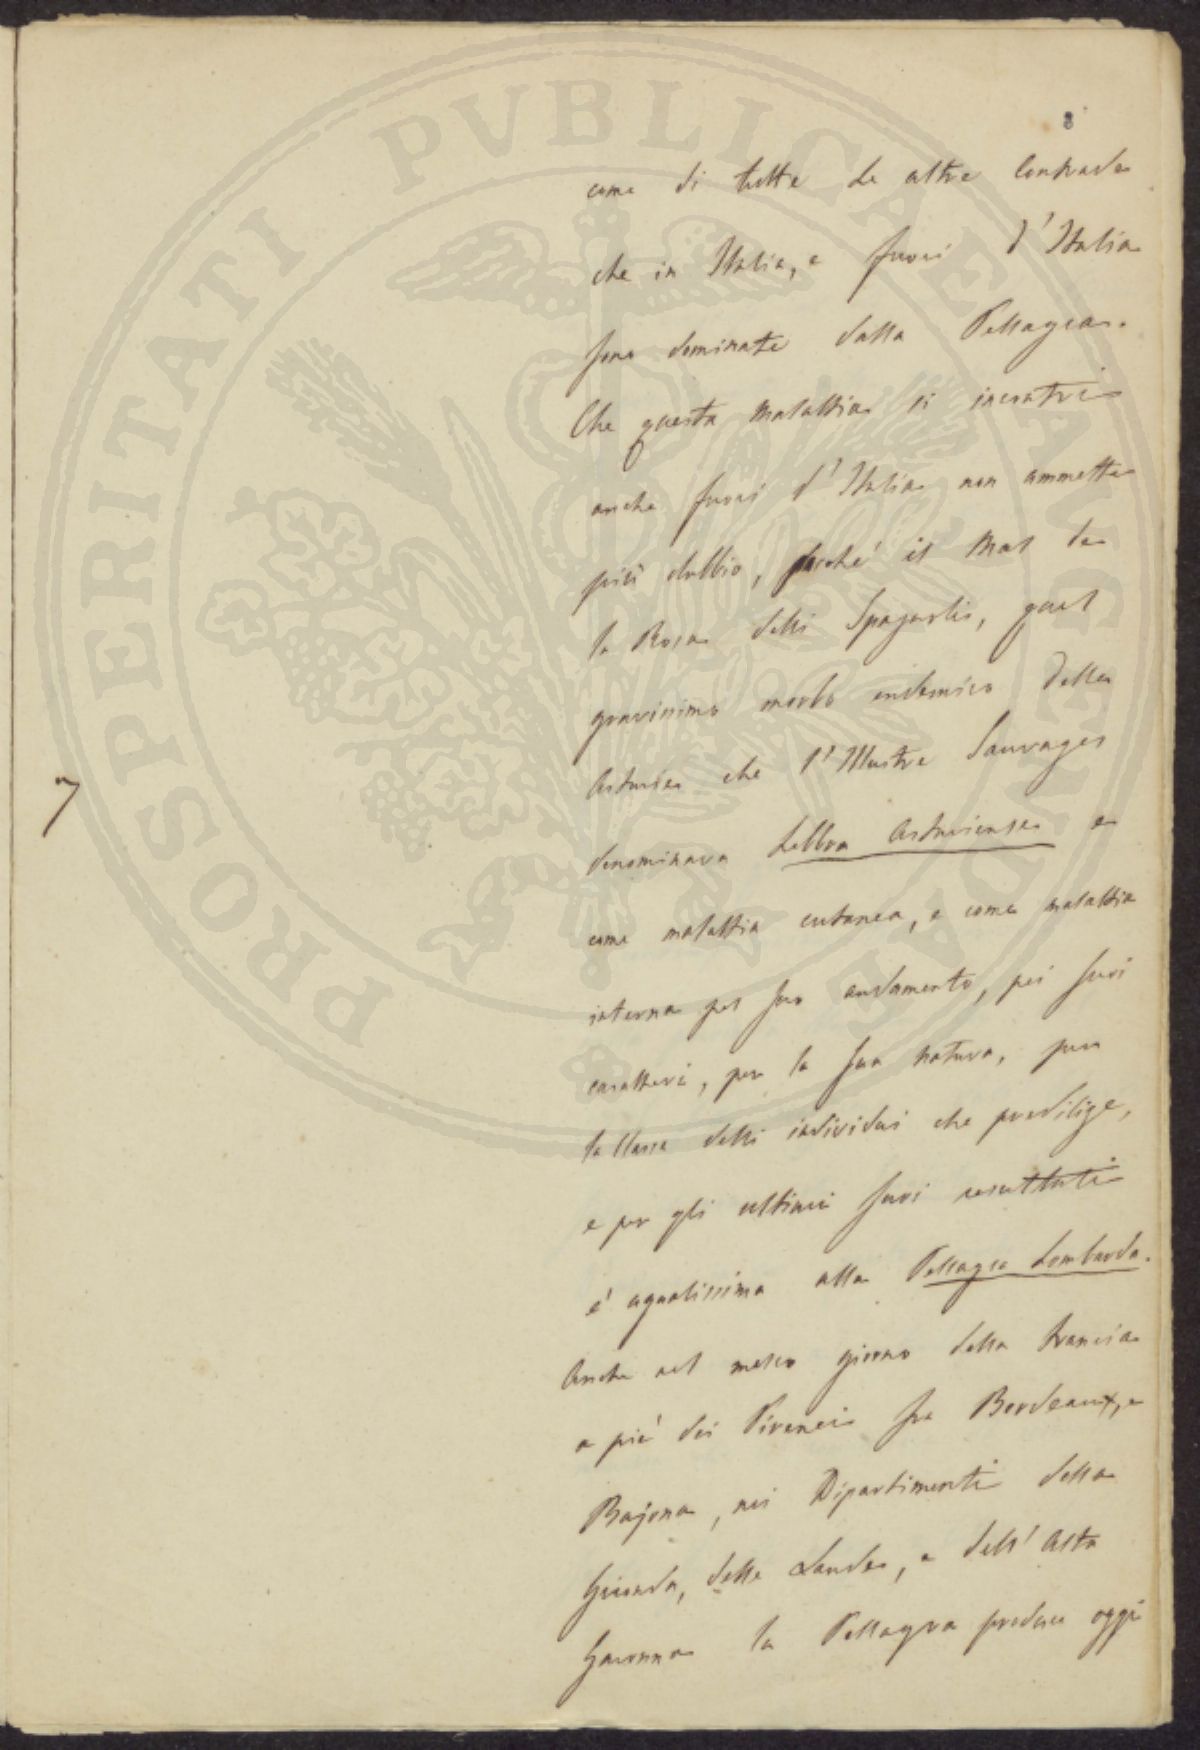 8
come di tutte le altre Contrade
che in Italia, e fuori d'Italia
sono dominate dalla Pellagra.
Che questa malattia si incontri
anche fuori d'Italia non ammette
più dubbio, perché il Mal de
la Rosa delli Spagnoli, quel
gravissimo morbo endemico delle
Asturie che l'Illustre Sauvages
denominava Lebbra Asturiense e
come malattia cutanea, e come malattia
7
interna pel suo andamento, pei suoi
caratteri, per la sua natura, per
la Classe delli individui che predilige,
e per gli ultimi suoi resultati
é egualissima alla Pellagra Lombarda.
Anche nel mezzo giorno della Francia
a pié dei Pirenei fra Bordeaux, e
Bajona, nei Dipartimenti della
Gironda, delle Lande, e dell'Alta
Garonna la Pellagra produce oggi
PROSPERITATI PVBLICAE AVGENDAE